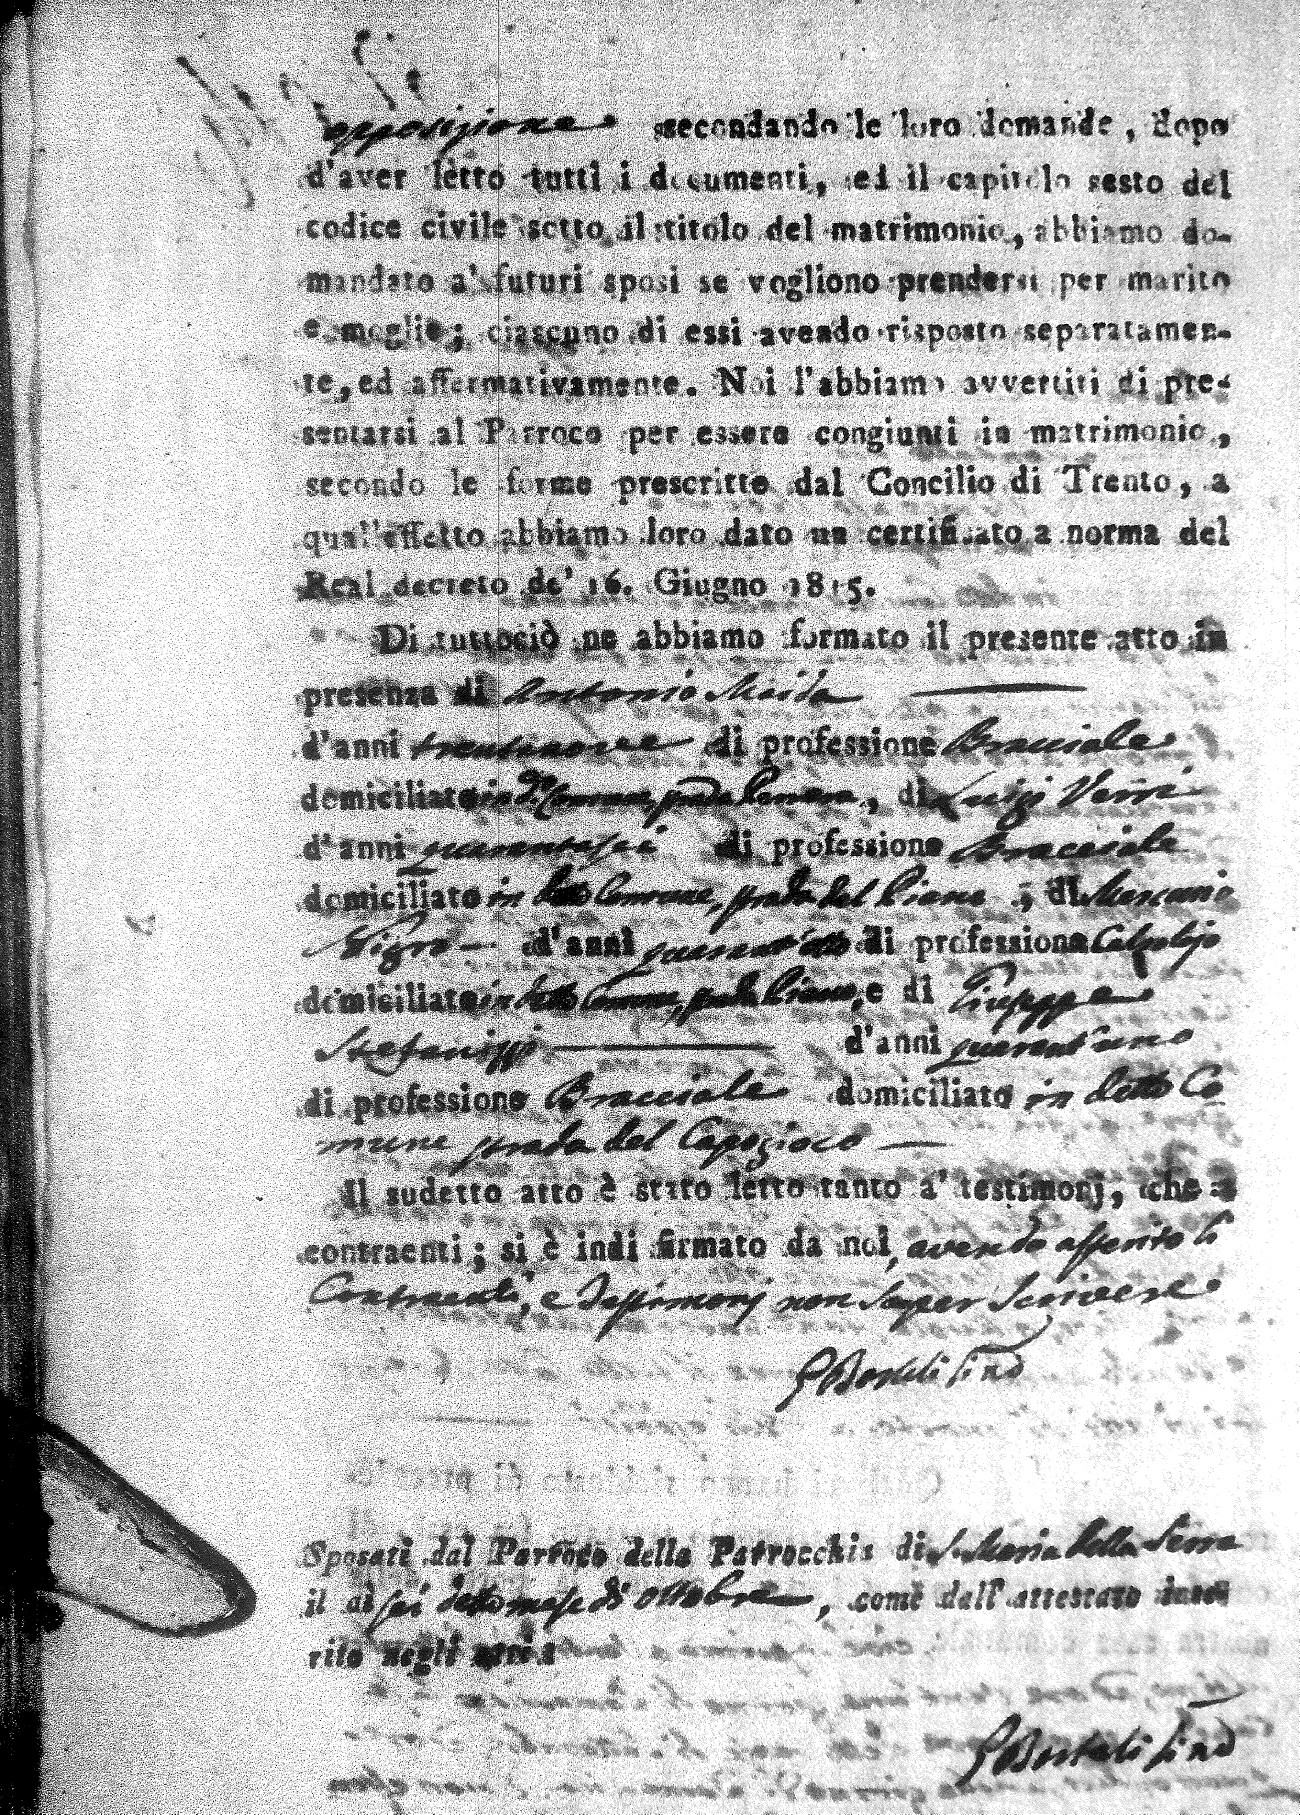 opposizione secondando le loro domande, dopo
d'aver letto tutti i documenti, ed il capitolo sesto del
codice civile sotto il titolo del matrimonio, abbiamo do-
mandato a' futuri sposi se vogliono prendersi per marito
e moglie; ciascuno di essi avendo risposto separatamen-
te, ed affermativamente. Noi l'abbiamo avvertiti di pre-
sentarsi al Parroco per essere congiunti in matrimonio,
secondo le forme prescritte dal Concilio di Trento, a
qual'effetto abbiamo loro dato un certificato a norma del
Real decreto de' 16. Giugno 1815.
Di tuttociò ne abbiamo formato il presente atto in
presenza di Antonio Maida
d'anni trentanove di professione Bracciale
domiciliato in do Comune, strada, di Luigi Verri
d'anni quarantasei di professione Bracciale
domiciliato in detto Comune, strada del Piano, di
Nigro d'anni quarant'otto di professione Calzolajo
domiciliato in detto Comune, strada Piano, e di Giuseppe
Stefanizzi d'anni quarant'uno
di professione Bracciale domiciliato in detto Co
mune strada del Capozioco
Il sudetto atto è stato letto tanto a' testimonj, che a
contraenti; si è indi firmato da noi, avendo asserito li
Contraenti, e Testimonj non saper scrivere
Sind
Sposati dal Parroco della Parrocchia di S. Maria della Serra
il dì sei detto mese di ottobre, come dall'attestato inse-
rito negli atti
Sind